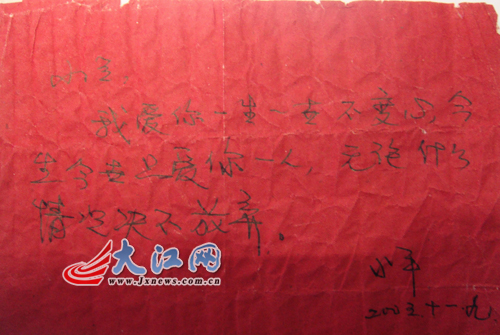 小玉:
我爱你一生一世不变心,今
生今世只爱你一人,无论什么
情况决不放弃.
大江网
www.jxnews.com.cn
小平
2003 十一.九